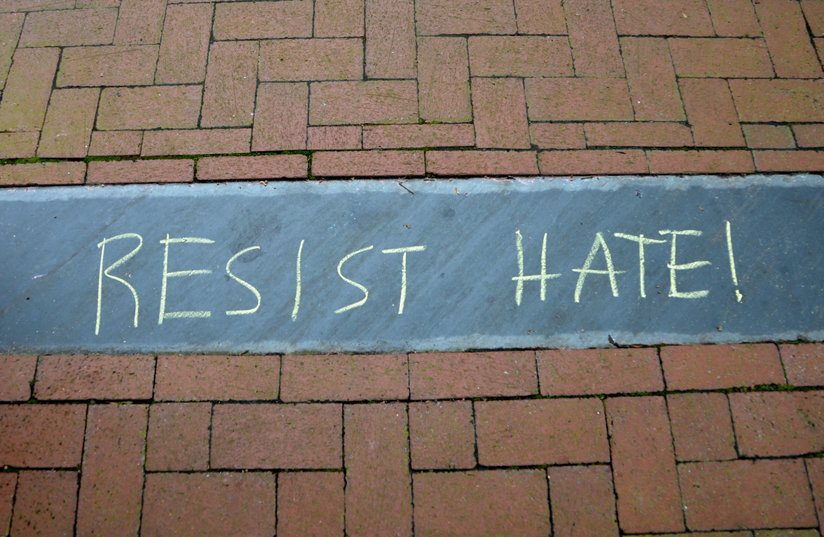 RESIST HATE!